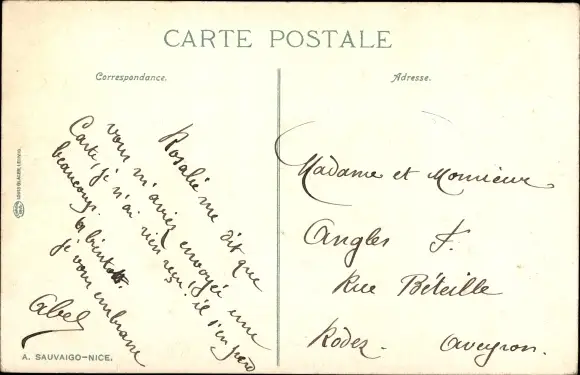 CARTE POSTALE
Correspondance.
Adresse.
Rosalie me dit que
vous m'aviez envoyé une
Carte, je n'ai rien reçu, il s'en perd
beaucoup.
a bientot.
je vous embrasse
Abel
Madame et Monsieur
Angles F.
Rue Béteille
Rodez. Aveyron.
A. SAUVAIGO-NICE.